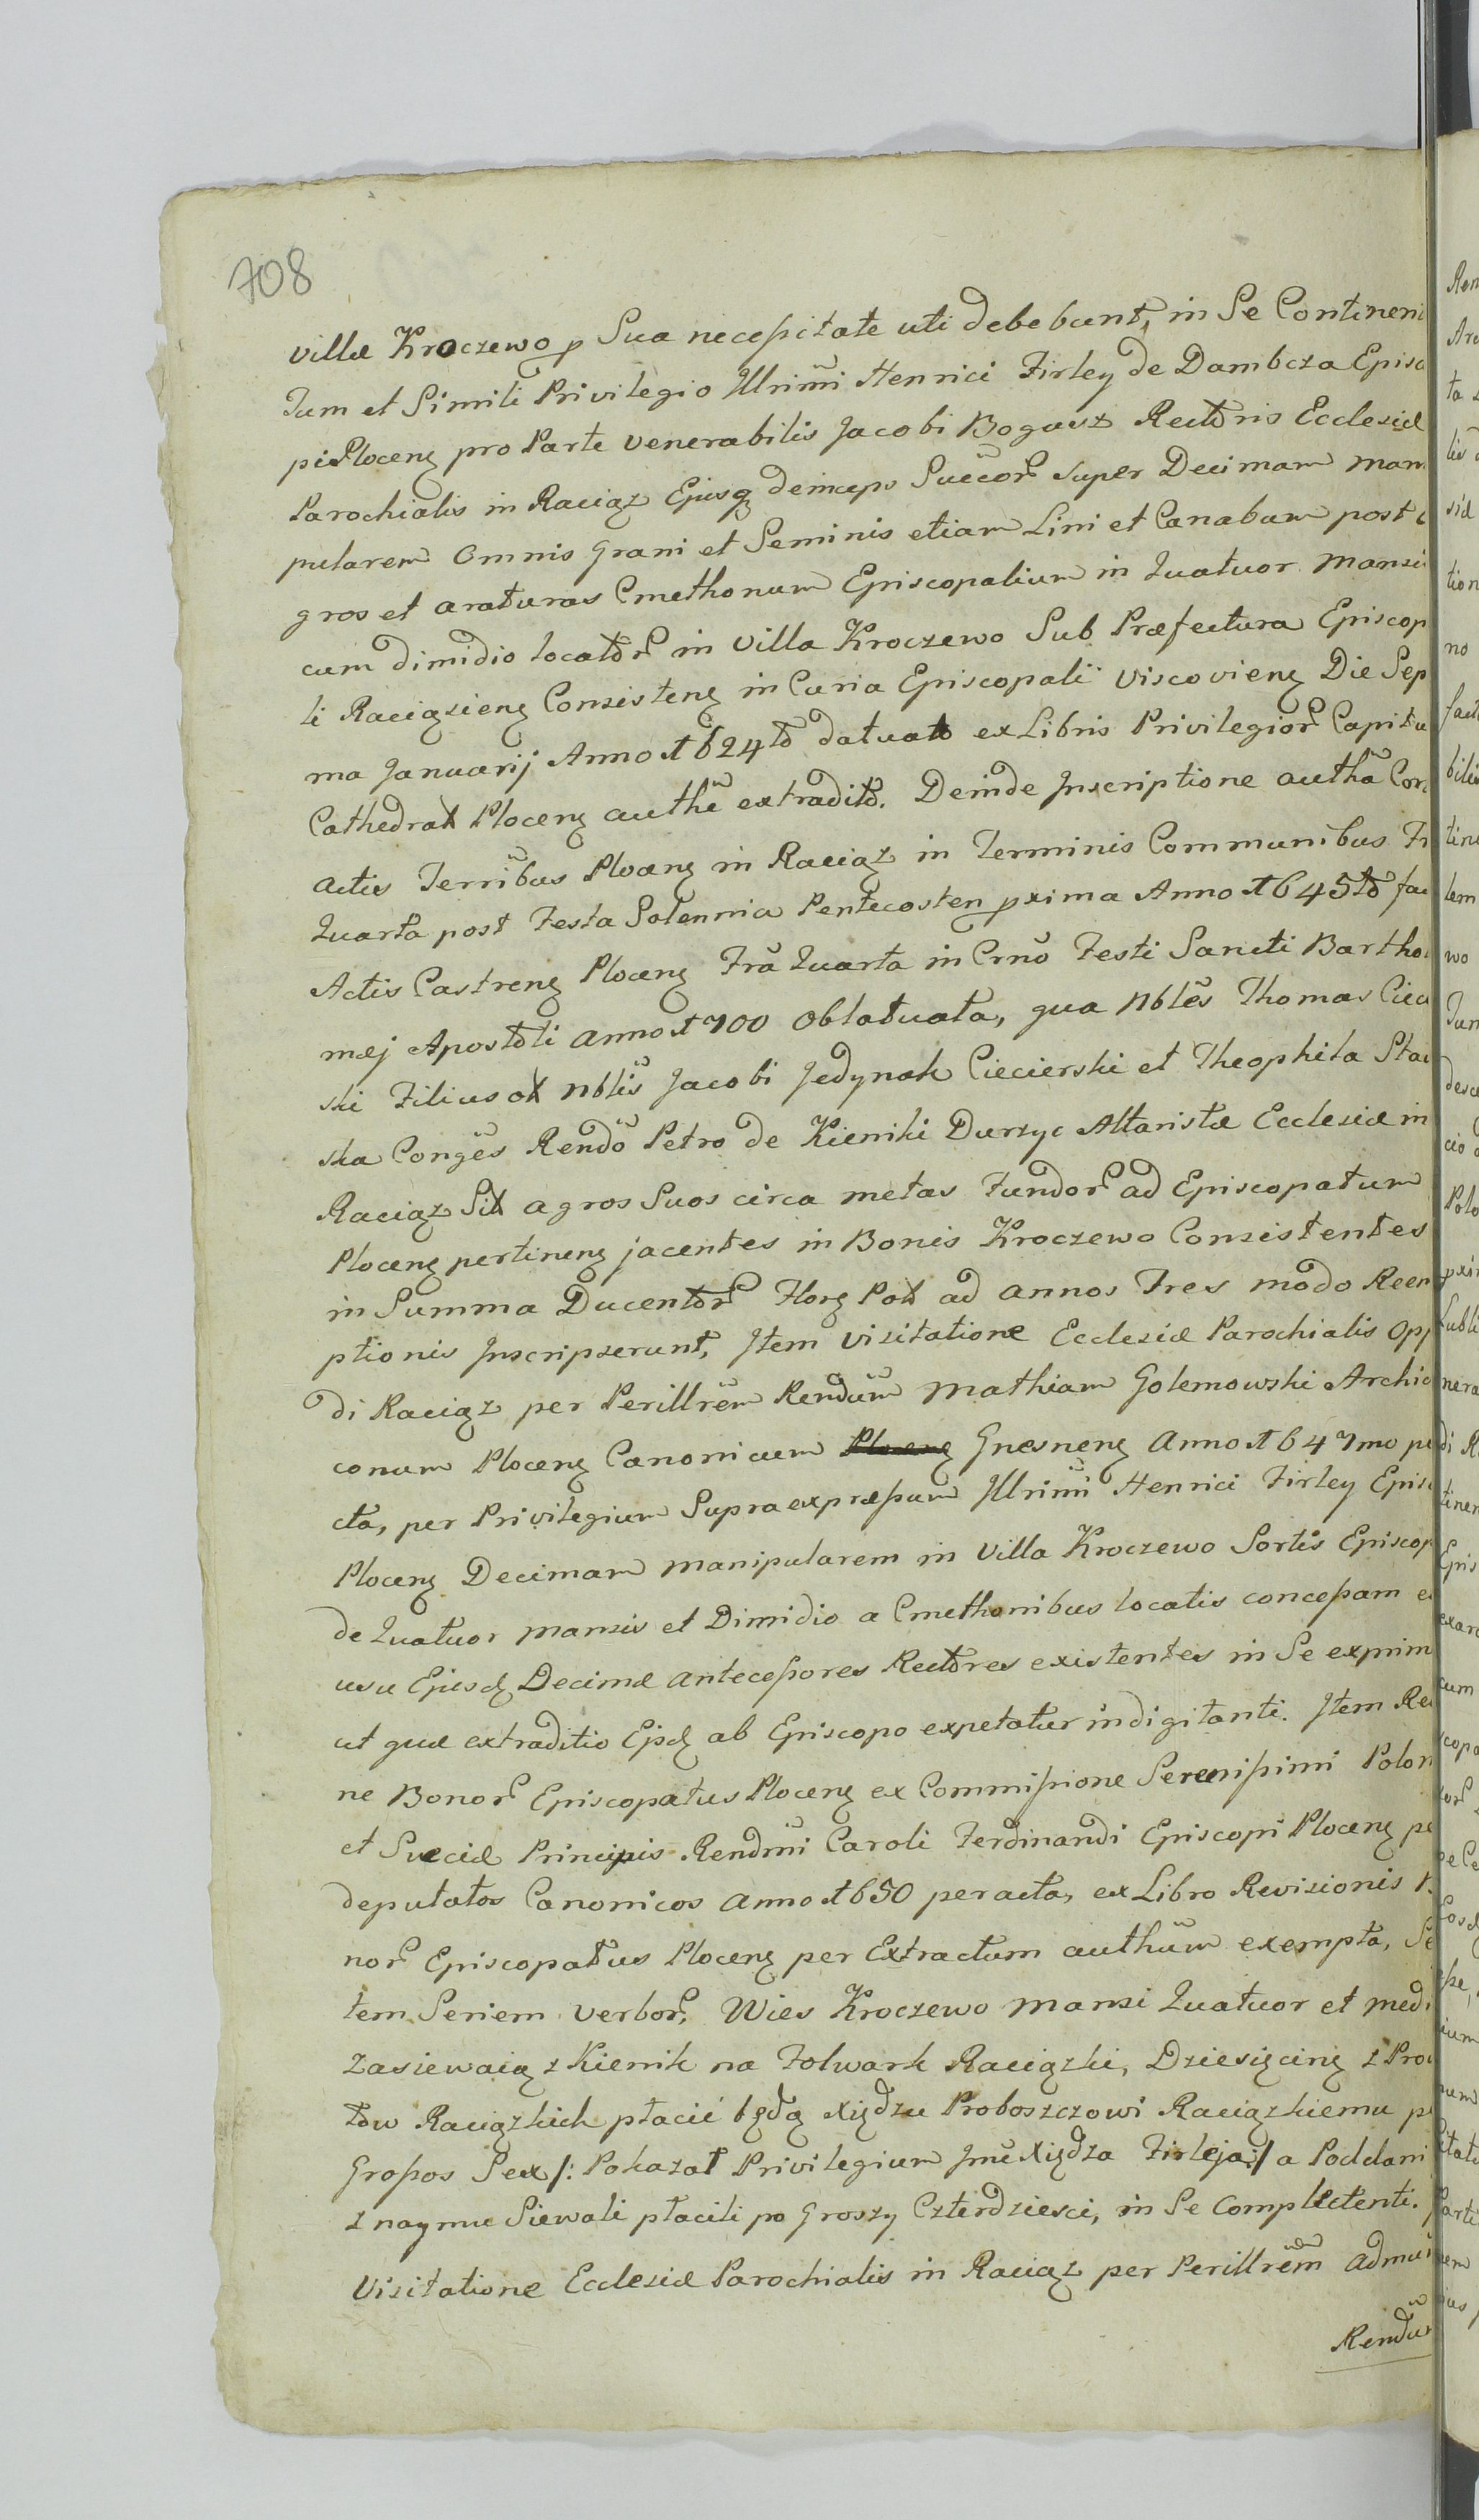 708
villæ Kroczewo p Sua necessitate uti debebunt, in Se Contineni
Tum et Simili Privilegio Illrimi Henrici Firley de Dambcza Episc
pi Plocen pro Parte Venerabilis Jacobi Bogusz Rectoris Ecclesiæ
Parochialis in Raciąz Ejusq deinceps Succor super Decimam Mani
pularem Omnis Grani et Seminis etiam Lini et Canabum post a
gros et araturas Cmethonum Episcopalium in Quatuor Mansis
cum dimidio locator in Villa Kroczewo Sub Præfectura Episcop
li Raciązien Consisten in Curia Episcopali Viscovien Die Sep
ma Januarij Anno 1624to datuato ex Libris Privilegior Capitu
Cathedral Plocen authe extradito. Deinde Inscriptione autha Cor
Actis Terribus Plocen in Raciąz in Terminis Communibus Fr
Quarta post Festa Solennia Pentecosten pxima Anno 1645to fac
Actis Castren Plocen Fra Quarta in Crno Festi Sancti Bartho
mæj Apostoli anno 1700 Oblatuata, qua Nbles Thomas Ciec
ski Filius ol Nblis Jacobi Jedynak Ciecierski et Theophila Sta
ska Conges Rendo Petro de Kieniki Durzyc Altaristæ Ecclesiæ in
Raciąz Sil agros Suos circa metas Fundor ad Episcopatum
Plocen pertinen jacentes in Bonis Kroczewo Consistentes
in Summa Ducentor Flor Pol ad annos Tres modo Reem
ptionis Inscripserunt, Item Visitatione Ecclesiæ Parochialis Opp
di Raciąz per Perillrem Rendum Mathiam Golemowski Archid
conum Plocen Canonicum Plocen Gnesnen Anno 1647mo pe
cta, per Privilegium Supra expræssum Illrimi Henrici Firley Epis
Plocen Decimam Manipularem in Villa Kroczewo Sortis Episcop
de Quatuor Mansis et Dimidio a Cmethonibus locatis concessam e
usu Ejusd Decimæ Antecessores Rectores existentes in Se exprim
ut quæ extraditio Ejd ab Episcopo expetatur indigitanti. Item Re
ne Bonor Episcopatus Plocen ex Commissione Serenissimi Polon
et Sveciæ Principis Rendmi Caroli Ferdinandi Episcopi Plocen pe
deputatos Canonicos Anno 1650 peracta, ex Libro Revisionis
nor Episcopatus Plocen per Extractum authum exempta, Se
tem Seriem Verbor, Wies Kroczewo Mansi Quatuor et medi
Zasiewaią z Kienik na Folwark Raciązki, Dziesięcinę z Pro
tow Raciązkich płacić będą Xiędzu Proboszczowi Raciązkiemu p
Grossos Sex /: Pokazał Privilegium Jme Xiędza Firleja :/ a Poddani
z naymu Siewali płacili po Groszy Czterdziesci, in Se Complectenti.
Visitatione Ecclesiæ Parochialis in Raciąz per Perillrem Admu
Rendu